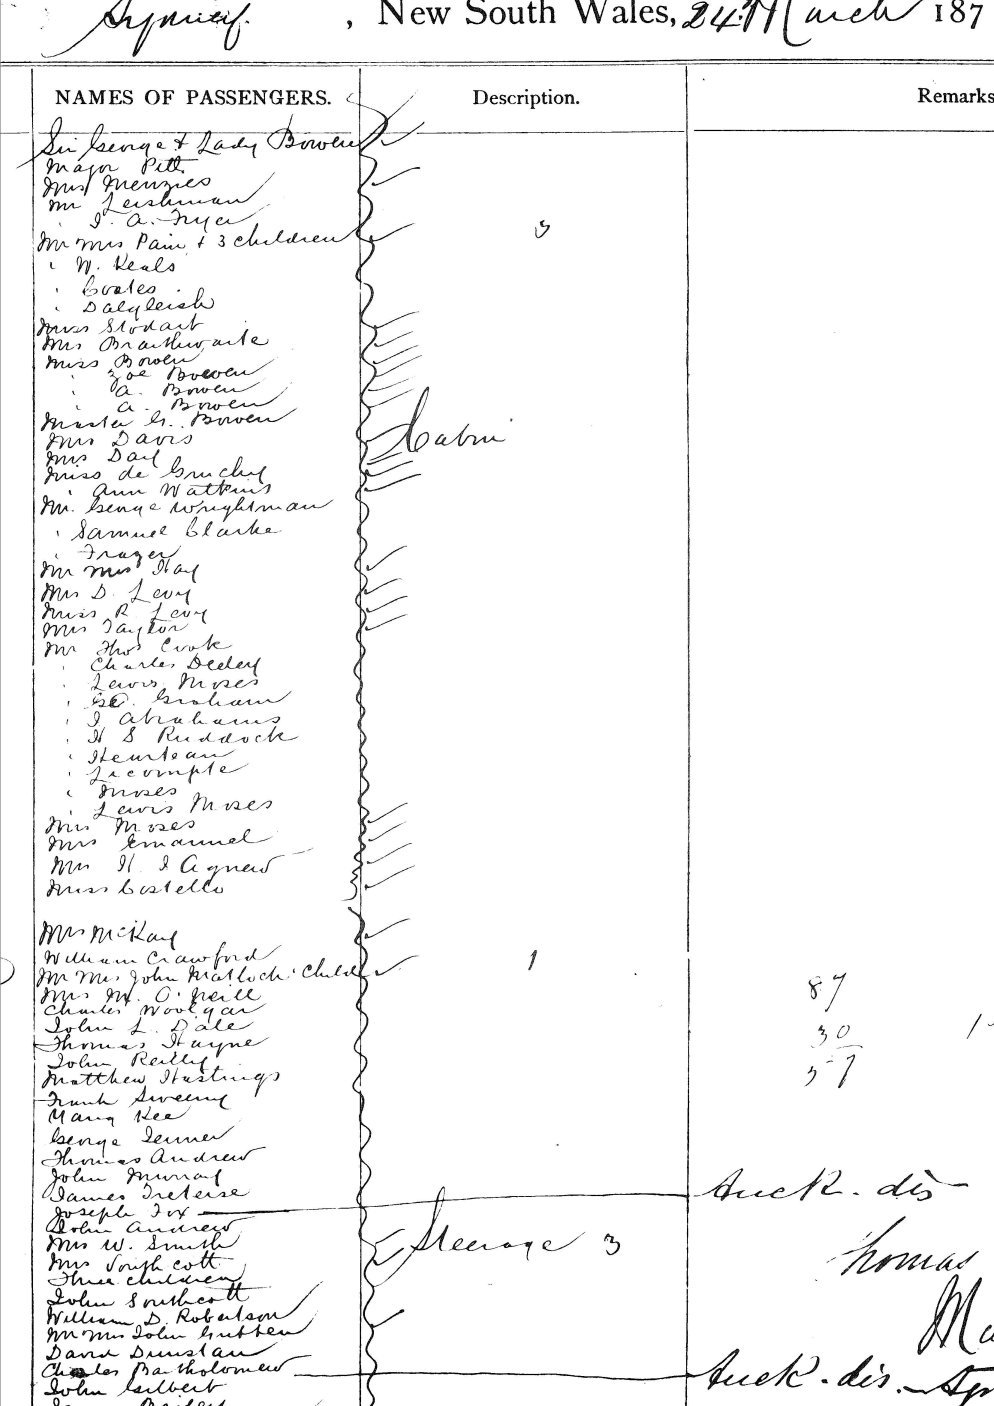 Sydney, New South Wales, 24th March 187
NAMES OF PASSENGERS. Description. Remarks
Sir George & Lady Bowen
Major Pitt
Mrs Menzies
Mr Leishman
" I. A. Fryer
Mr Mrs Pain & 3 children 3
" W. Keals
" Coates
" Dalgleish
Miss Stodart
Mrs Braithwaite
Miss Bowen
" Zoe Bowen
" A. Bowen
" A. Bowen
Master G. Bowen
Mrs Davis Cabin
Mrs Day
Miss de Gruchy
" Ann Watkins
Mr. George Wrightman
" Samuel Clarke
" Frazer
Mr Mrs Hay
Mrs D. Levy
Miss R Levy
Mrs Taylor
Mr Thos Cook
" Charles Dedey
" Lewis Moses
" Graham
" I Abrahams
" H S Ruddock
" Heurteau
" Licompte
" Moses
" Lewis Moses
Mrs Moses
Mrs Emanuel
Mrs H. I Agnew
Miss Costello
Mrs McKay
William Crawford 1
Mr Mrs John Matlock & Child
Mrs M. O'Neill 87
Charles Woolgar
John L. Dale 30
Thomas Hayne
John Reilly 57
Matthew Hastings
Frank Sweeny
Yang Kee
George Jenner
Thomas Andrew
John Murray
James Treterse Auck. dis
Joseph Fox
John Andrew
Mrs W. Smith Steerage 3
Mrs Southcott Thomas
Three children
John Southcott
William D. Robertson Ma
Mr Mrs John Gubben
David Dunstan
Charles Bartholomew Auck. dis.
John Gilbert